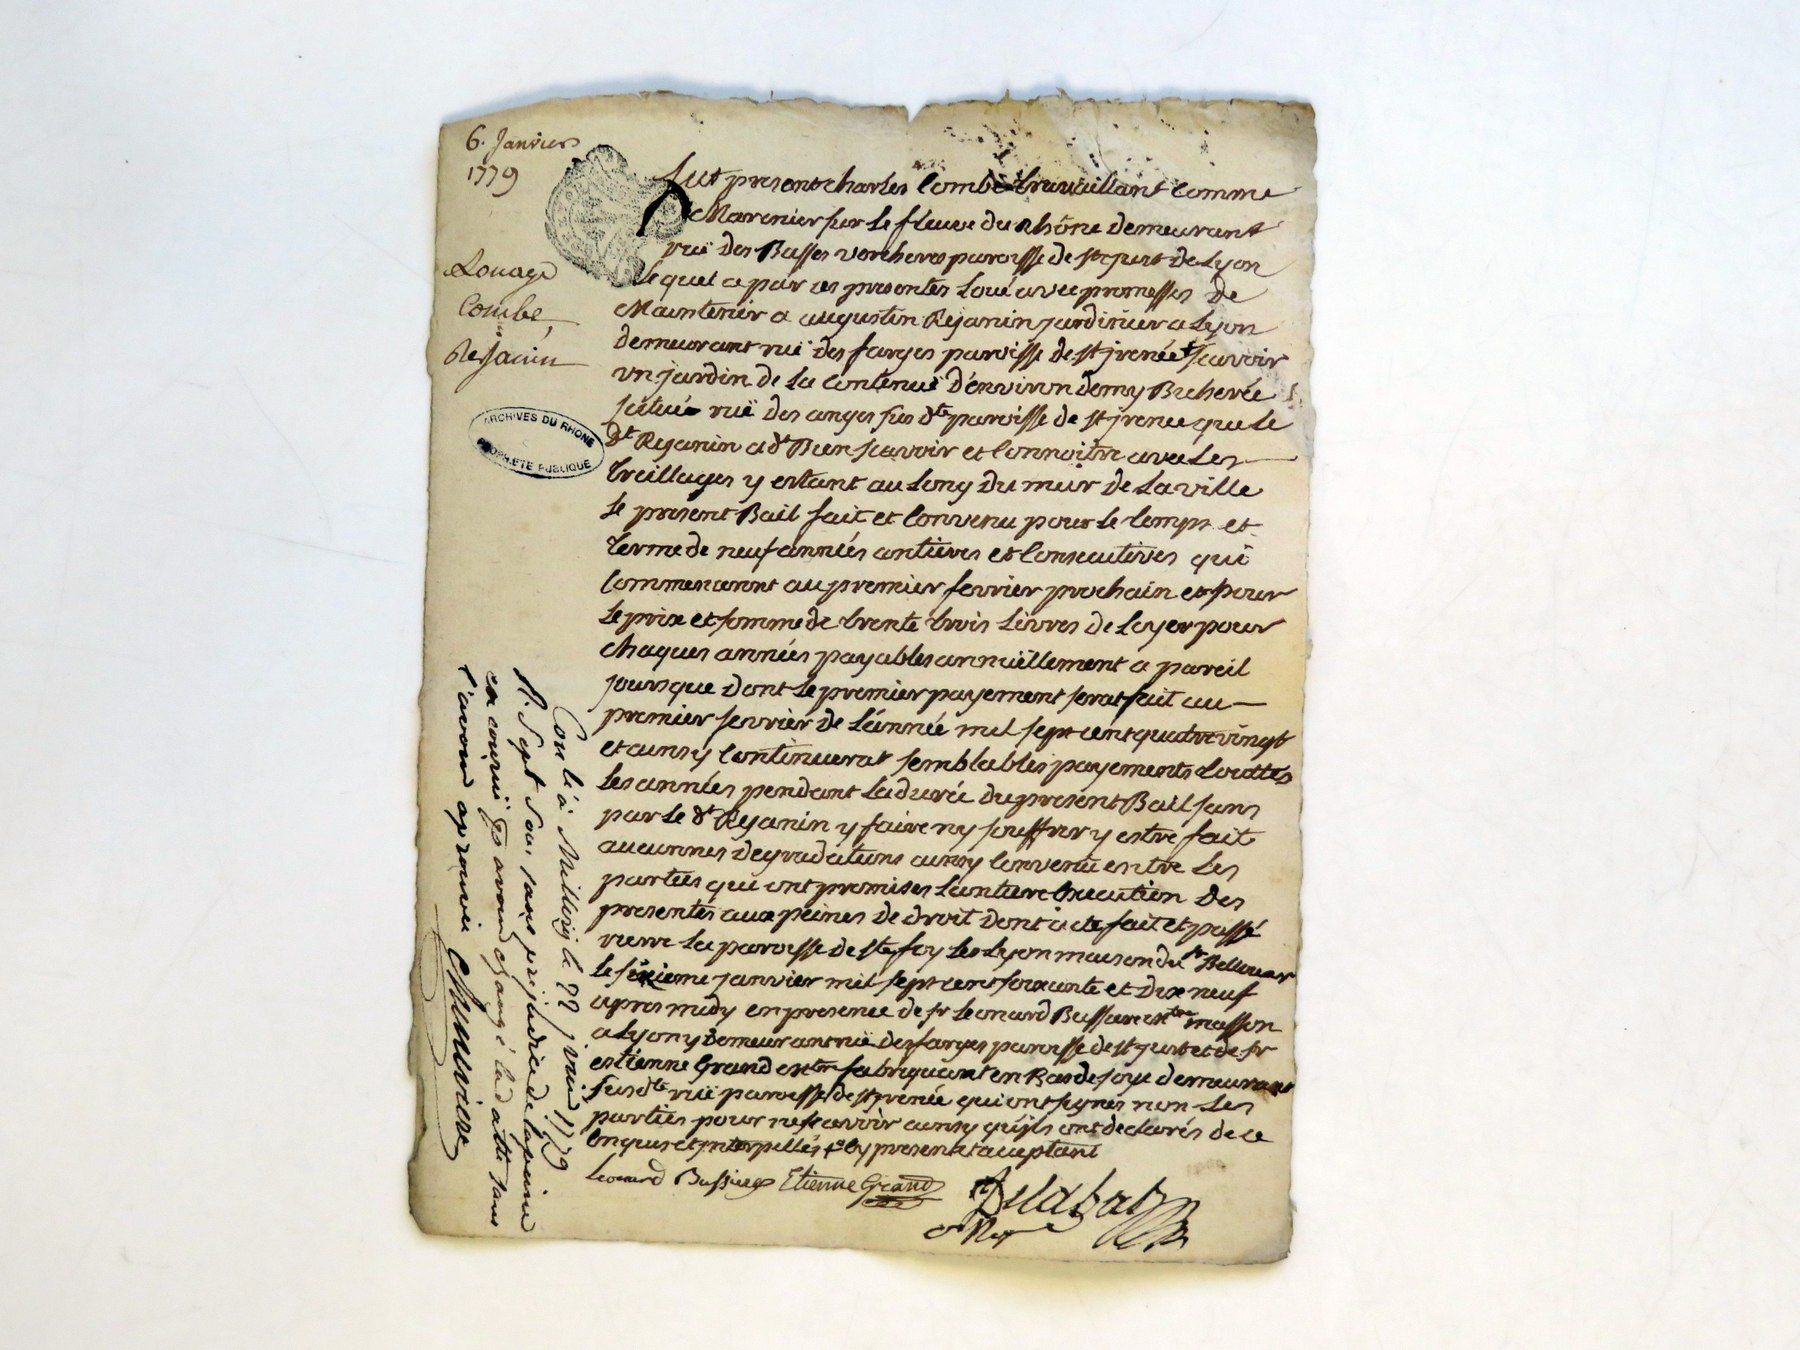 6. Janvier
1779
Louage
Combe,
Rejanin
ARCHIVES DU RHONE
PROPRIETE PUBLIQUE
Fut present charles Combe travaillant comme
Marinier sur le fleuve du rhône demeurant
ruë des Basses vercheres paroisse de st just de Lyon
lequel a par ces presentes Loué avec promesses de
Maintenir a augustin Rejanin jardinier a Lyon
demeurant ruë des farges paroisse de st jrenée + scavoir
vn jardin de la contenuë d'environ demy Bicherée
situé ruë des anges sus dte paroisse de st jrenee que le
dt Rejanin a dt Bien scavoir et connoitre avec les
treillages y estant au long du mur de la ville
le present Bail fait et convenu pour le temps et
terme de neuf années antieres et consecutives qui
commenceront au premier fevrier prochain et pour
le prix et somme de trente trois Livres de loyer pour
chaques années payables annuëllement a pareil
jours que dont le premier payement serat fait au
premier fevrier de l'année mil sept cent quatre vingt
et aunsy continuerat semblables payements touttes
les années pendant la durée du present Bail sans
par le dt Rejanin y faire ny souffrir y estre fait
aucunnes degradations aunsy convenu entre les
parties qui ont promises l'antiere execution des
presentes aux peines de droit dont acte fait et passé
riere la paroisse de ste foy les Lyon maison du sr
le sixieme janvier mil sept cent soixante et dix neuf
apres midy en presence de sr Leonard Bussiere mtre masson
a Lyon y demeurant ruë des farges paroisse de st just et de sr
estienne Grand mtre fabriquant en Bas de soye demeurant
susdte ruë paroisse de st jrenée qui ont signés non les
parties pour ne scavoir aunsy qu'jls ont declarés de ce
enquis et jnterpellés + cy present et acceptant
Leonard Bussiere Etienne Grand
Delabat
nre Ral
Con lé à Millery le 22 janvier 1779
R. Sept sous sans prejudice de la peine
en courüe pr avoir changé la datte sans
l'avoir aprouvée